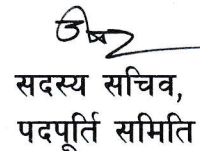 सदस्य सचिव,
पदपूर्ति समिति